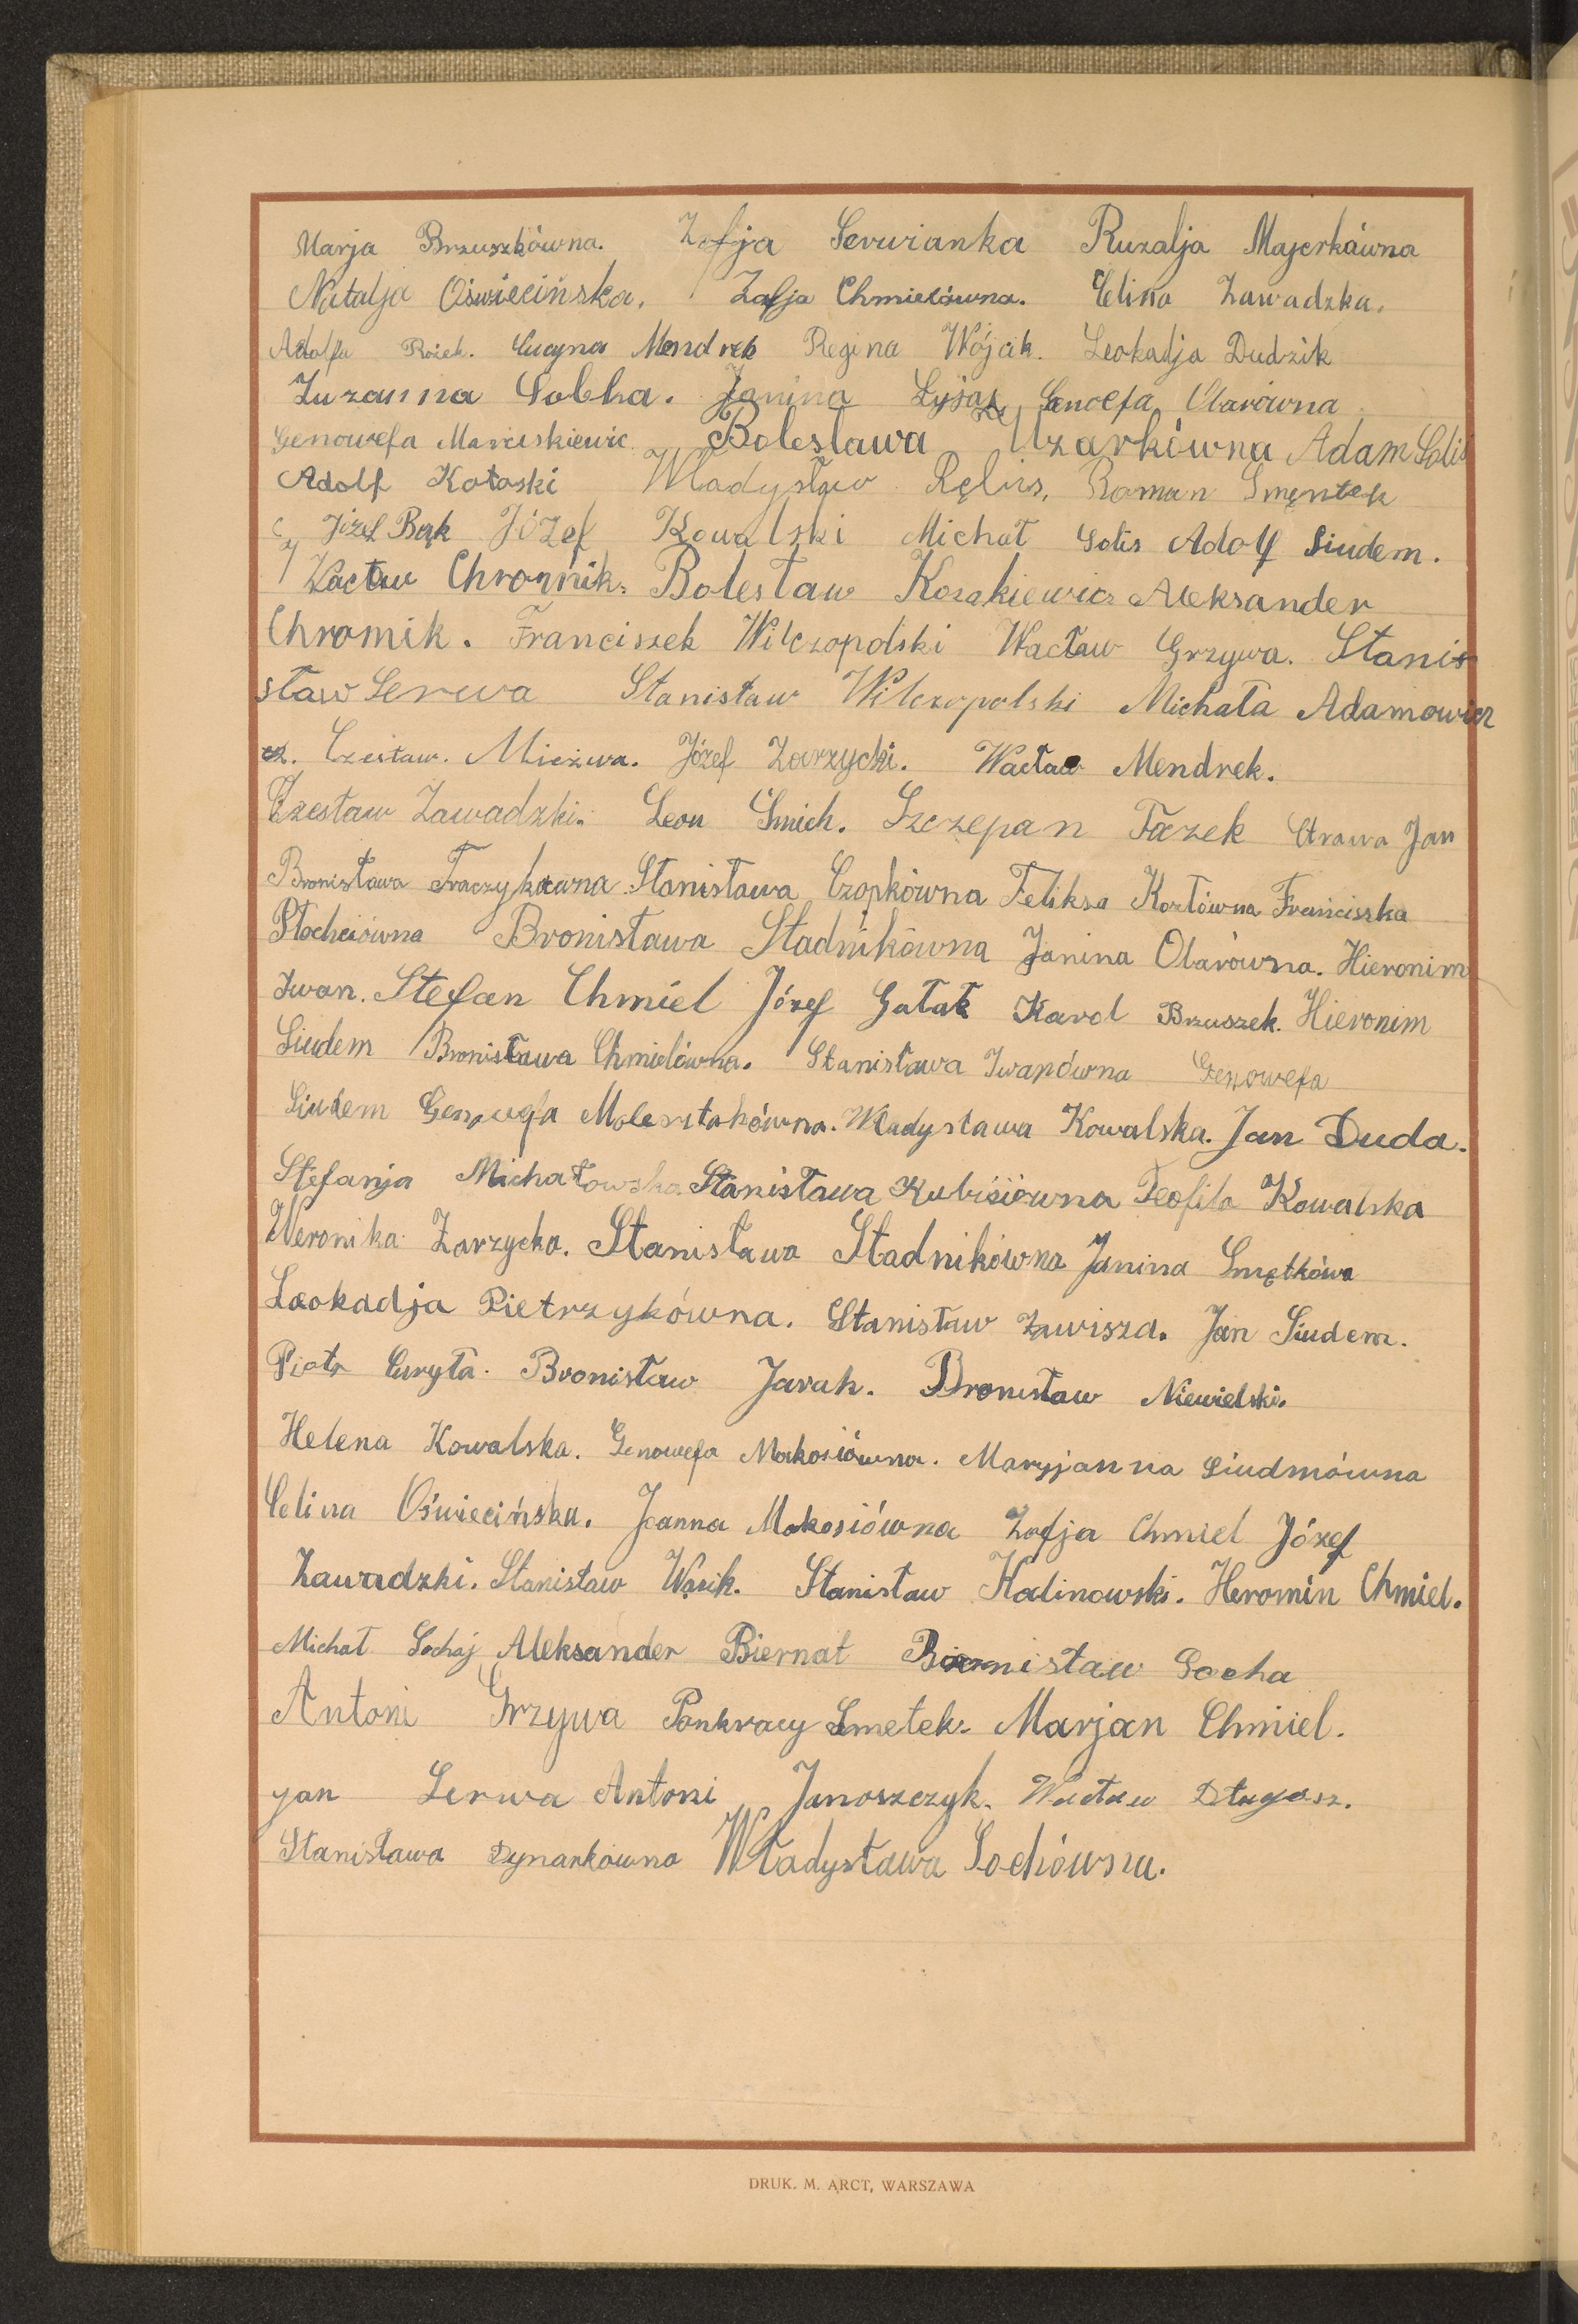 Marja Brzuszkówna. Zofja Serwianka Ruzalja Majerkówna
Natalja Oświecińska. Zofja Chmielówna. Celina Zawadzka.
Adolfa Rożek. Lucyna Mendrek Regina Wójcik. Leokadja Dudzik
Zuzanna Sobka. Janina Łysas Genoefa Olarówna
Genowefa Marciskiewic Bolesława Uzarkówna Adam Solis
Adolf Kotoski Władysław Rębis, Roman Smentek
Józef Bąk Józef Kowalski Michał Solis Adolf Siudem.
Wacław Chromnik. Bolesław Kozakiewicz Aleksander
Chromik. Franciszek Wilczopolski Wacław Grzywa. Stanis
sław Serwa Stanisław Wilczopolski Michała Adamowicz
cz. Czesław. Mierzwa. Józef Zarzycki. Wacław Mendrek.
Czesław Zawadzki. Leon Smich. Szczepan Taczek Urawa Jan
Bronisława Fraczykówna Stanisława Czopkówna Feliksa Kozłówna Franciszka
Płocheiówna Bronisława Stadnikówna Janina Olarówna. Hieronim
Iwan. Stefan Chmiel Józef Gałat Karol Brzuszek. Hieronim
Siudem Bronisława Chmielówna. Stanisława Iwanówna Genowefa
Siudem Genowefa Molesztakówna. Władysława Kowalska. Jan Duda.
Stefanja Michałowska Stanisława Kubisiówna Teofila Kowalska
Weronika Zarzycka. Stanisława Stadnikówna Janina Smętkówa
Leokadja Pietrzykówna. Stanisław Zawisza. Jan Siudem.
Piotr Curyła. Bronisław Jarak. Bronisław Niewielski.
Helena Kowalska. Genowefa Makosiówna. Maryjanna Siudmówna
Celina Oświecińska. Joanna Makosiówna Zofja Chmiel Józef
Zawadzki. Stanisław Wasik. Stanisław Kalinowski. Heromin Chmiel.
Michał Sochaj Aleksander Biernat Bronisław Socha
Antoni Grzywa Pankracy Smetek. Marjan Chmiel.
jan Serwa Antoni Janoszczyk. Wacław Długosz.
Stanisława Dynarkówna Władysława Sochówna.
DRUK. M. ARCT, WARSZAWA